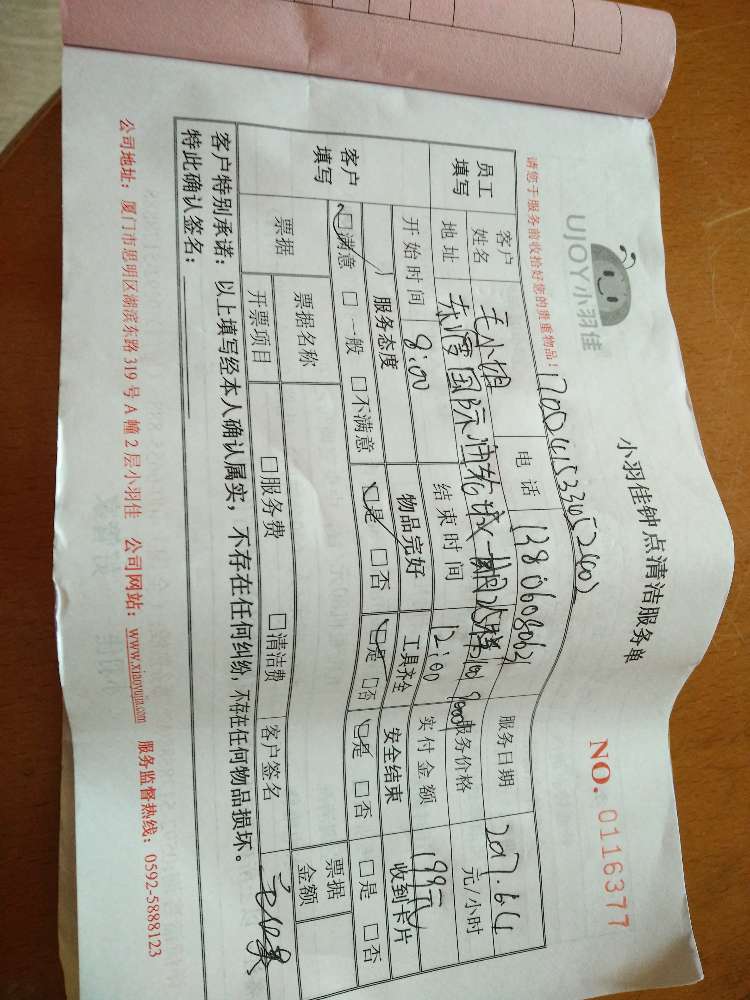 UJOY小羽佳
小羽佳钟点清洁服务单
NO. 0116377
请您于服务前收拾好您的贵重物品！
员工填写
客户姓名
毛小姐
电话
13806080063
服务日期
2017.6.4
地址
服务价格
元/小时
开始时间
8:00
结束时间
12:00
实付金额
199元
客户填写
服务态度
物品完好
工具齐全
安全结束
收到卡片
□满意 □一般 □不满意
□是 □否
□是 □否
□是 □否
□是 □否
票据
票据名称
票据金额
开票项目
□服务费 □清洁费
客户签名
客户特别承诺：以上填写经本人确认属实，不存在任何纠纷，不存在任何物品损坏。
特此确认签名：
公司地址：厦门市思明区湖滨东路 319 号 A 幢 2 层小羽佳 公司网站：www.xiaoyujia.com 服务监督热线：0592-5888123